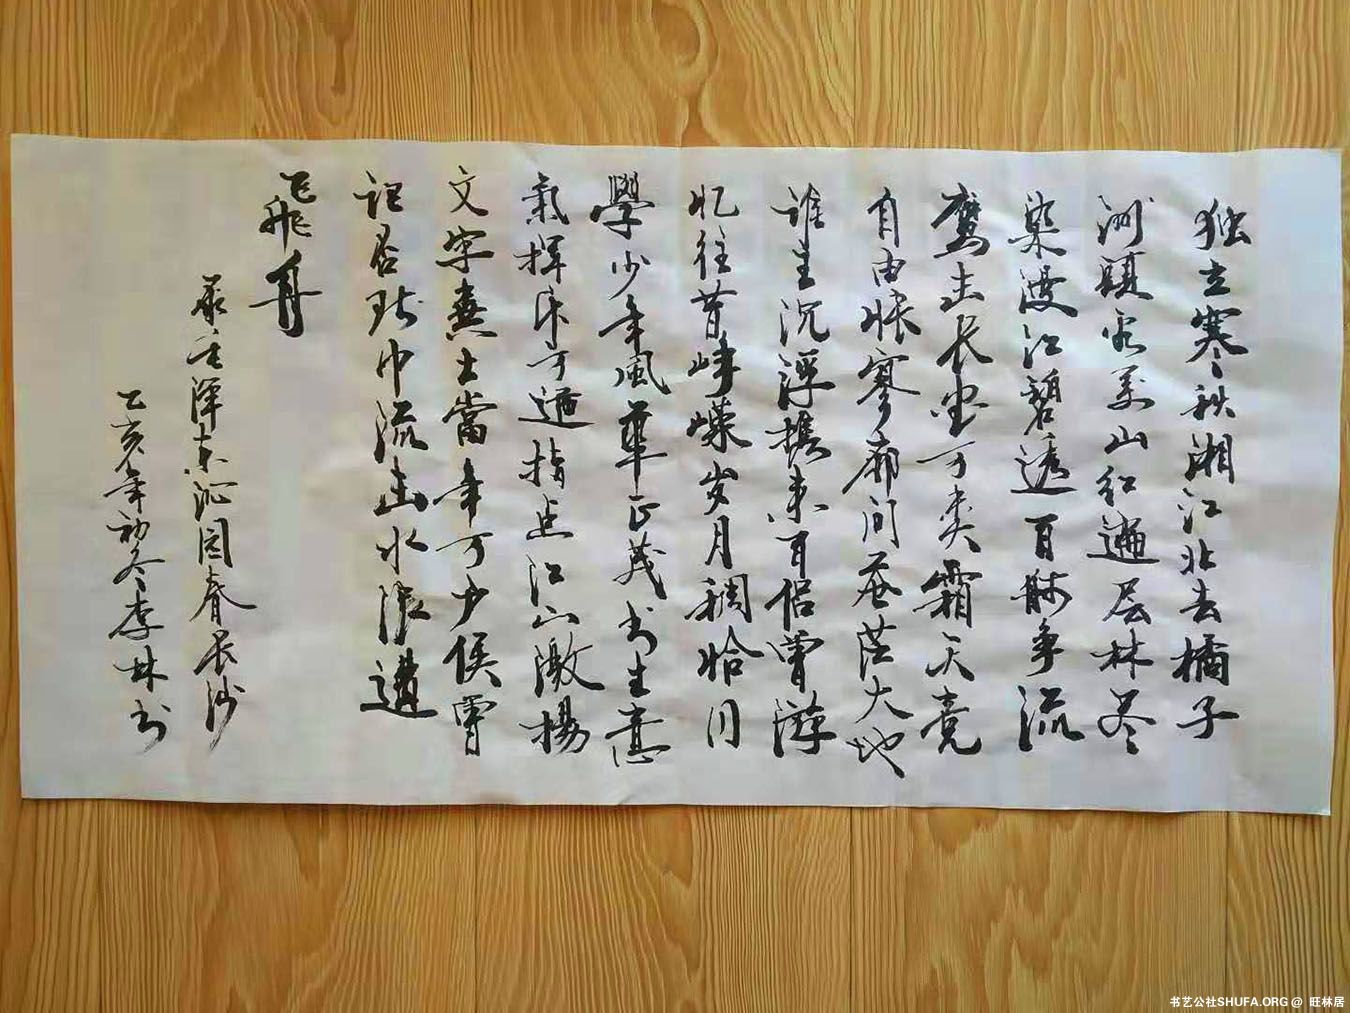 独立寒秋湘江北去橘子
洲頭看万山红遍层林尽
染漫江碧透百舸争流
鹰击长空万类霜天竞
自由怅寥廓问苍茫大地
谁主沉浮携来百侣曾游
忆往昔峥嵘岁月稠恰同
學少年風華正茂书生意
氣挥斥方遒指点江山激揚
文字粪土當年万户侯曾
记否到中流击水浪遏
飛舟
录毛泽东沁园春长沙
己亥年初冬李林书
书艺公社SHUFA.ORG @ 旺林居